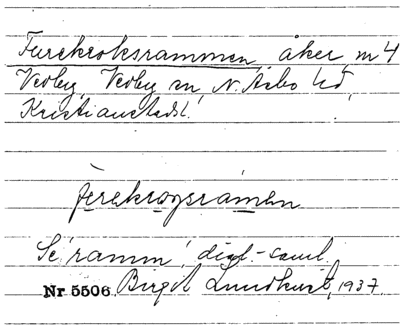 Furekroksrammen, åker m 4
Vedby, Vedby sn, N. Åsbo hd,
Kristianstads l.
furekrogsramen
Se 'ramm', dial.-saml.
Nr 5506. Birgit Lundkvist, 1937.